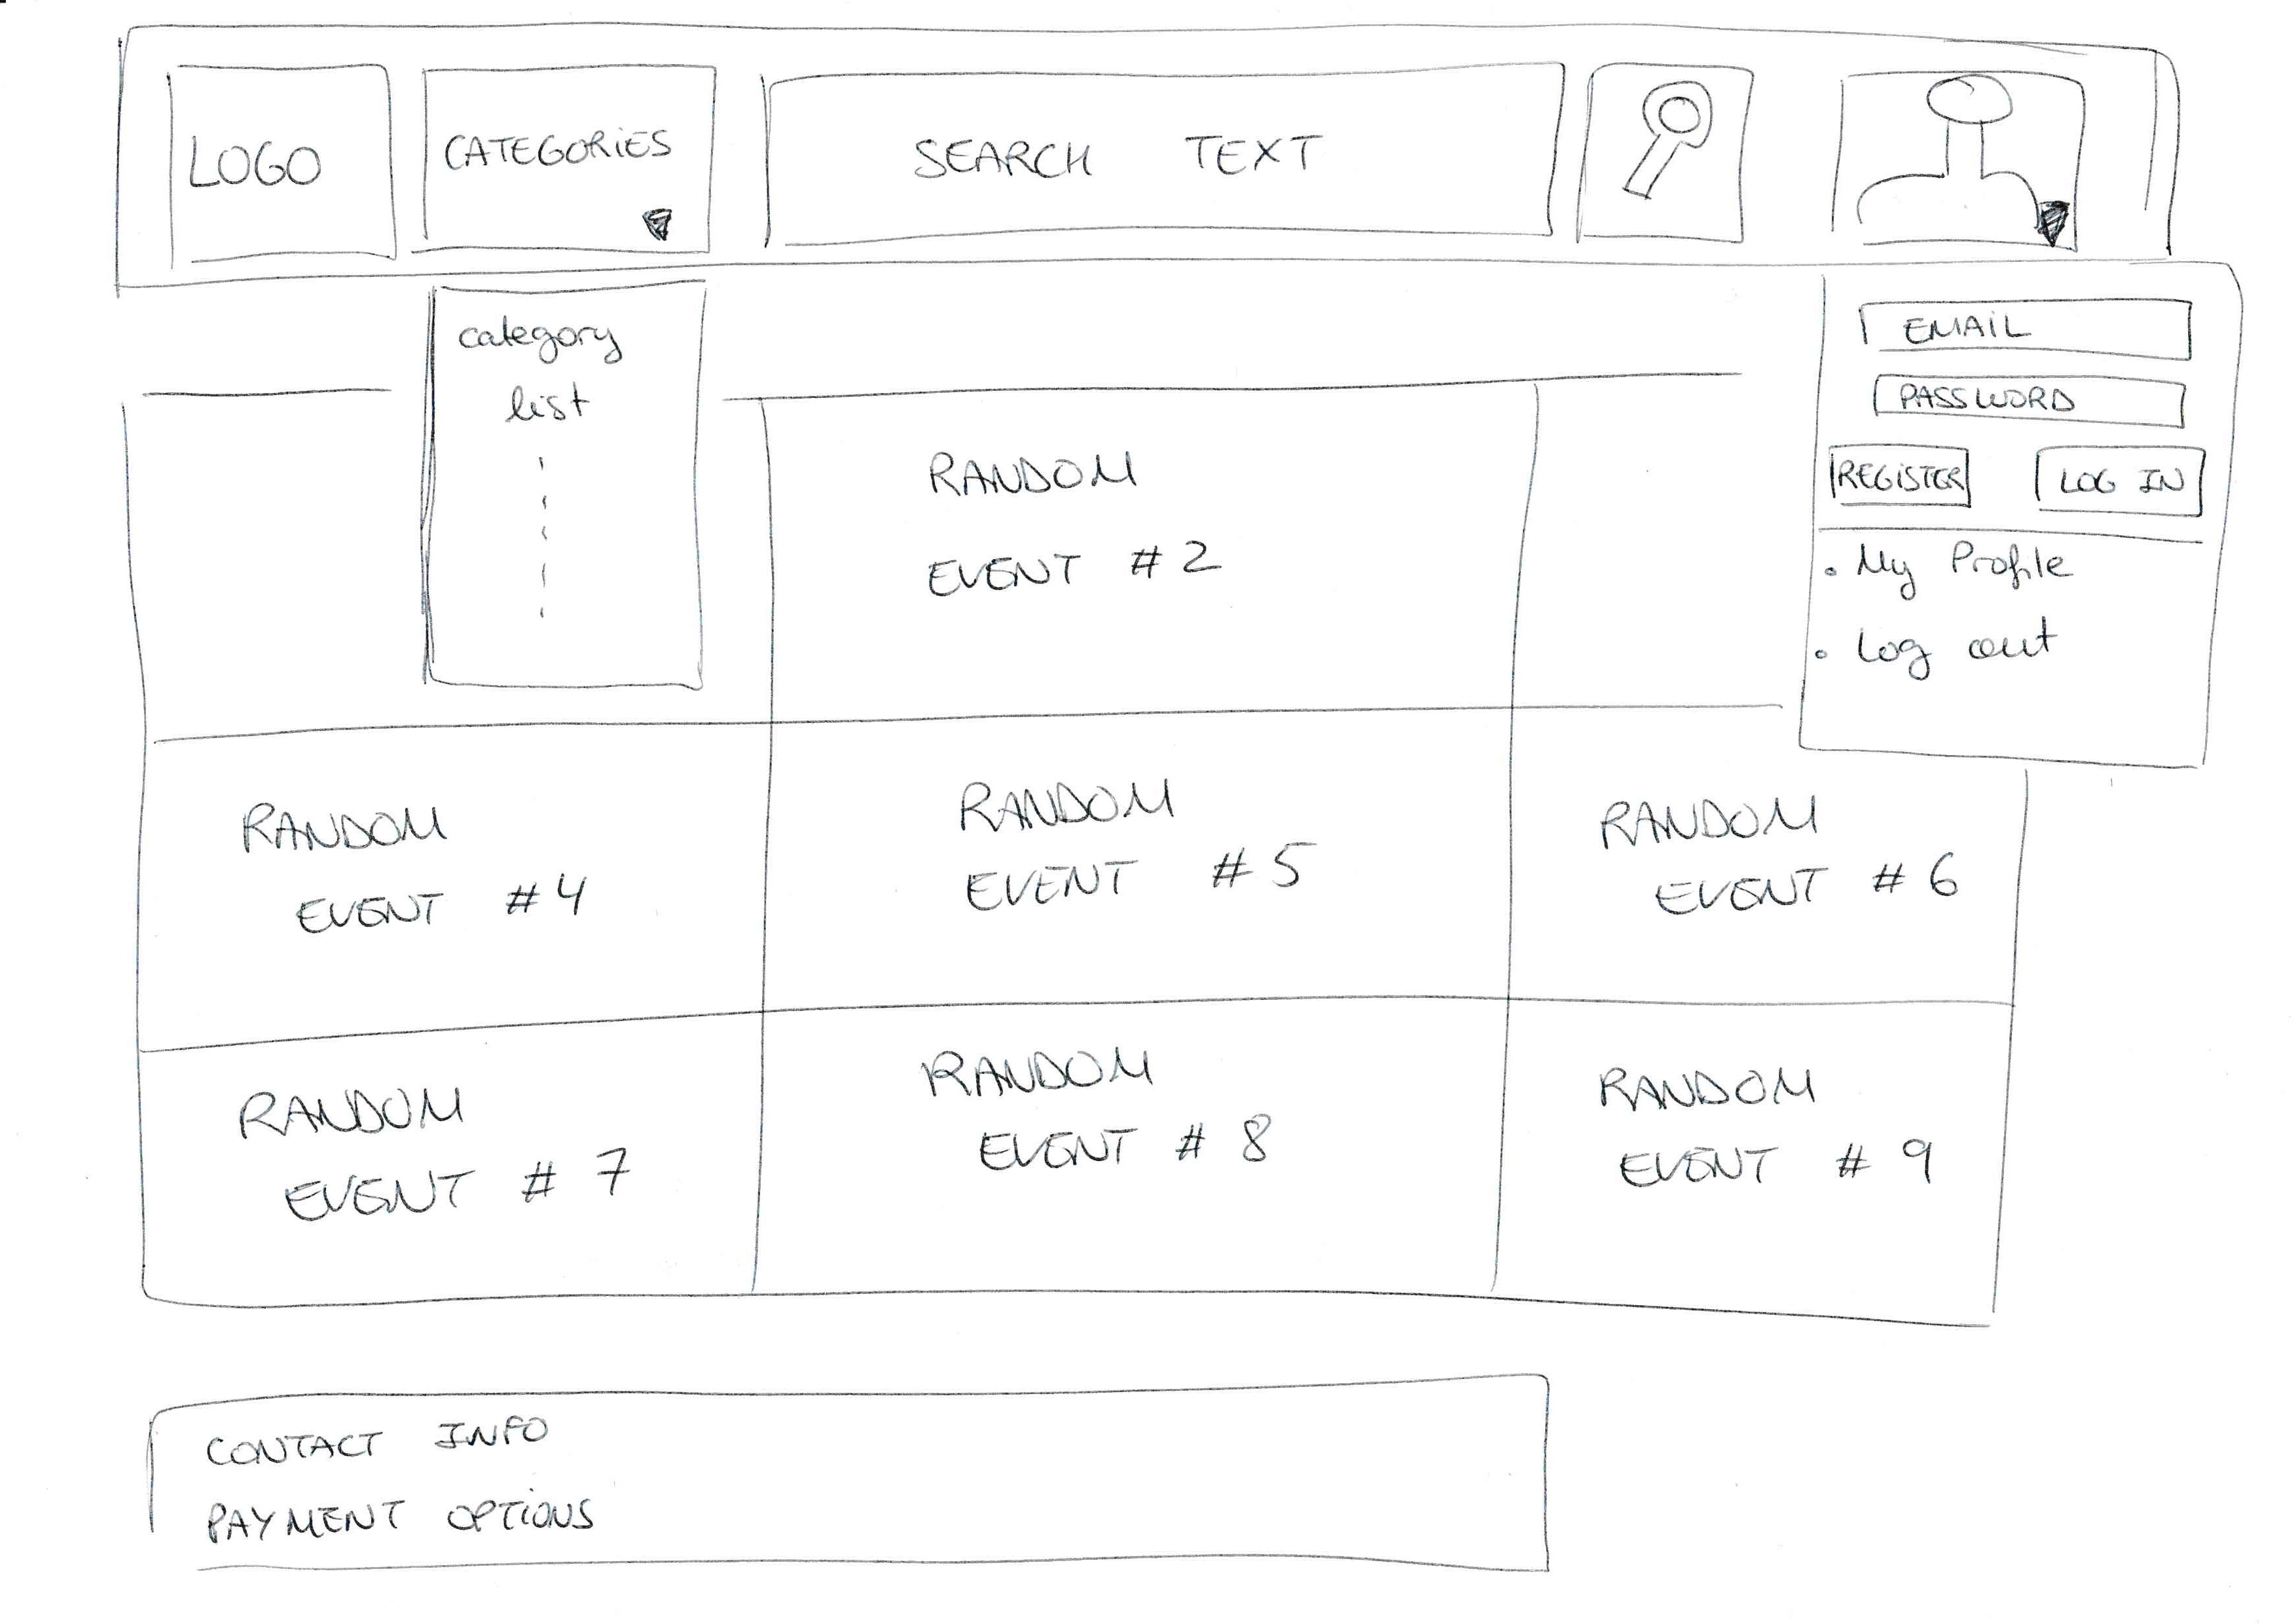 LOGO
CATEGORIES
SEARCH TEXT
category
list
EMAIL
PASSWORD
REGISTER
LOG IN
My Profile
Log out
RANDOM
EVENT #2
RANDOM
EVENT #4
RANDOM
EVENT #5
RANDOM
EVENT #6
RANDOM
EVENT # 7
RANDOM
EVENT # 8
RANDOM
EVENT # 9
CONTACT INFO
PAYMENT OPTIONS